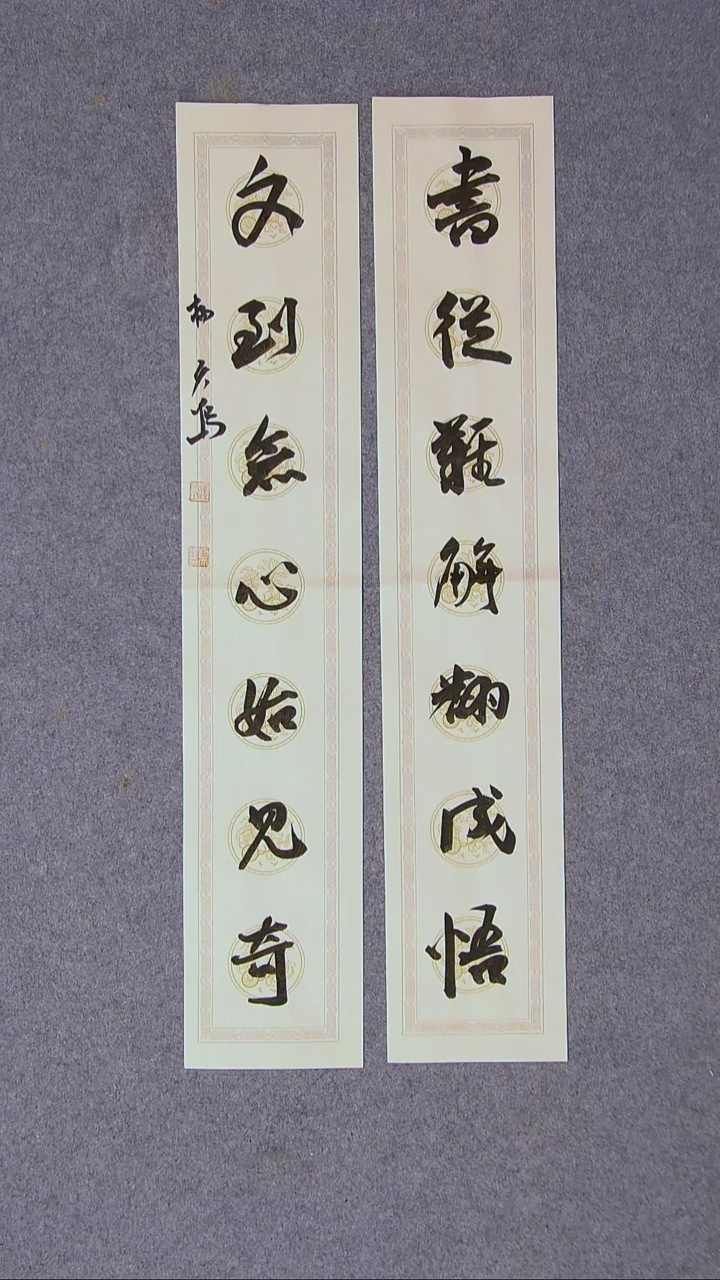 書從難解翻成悟
文到無心始見奇